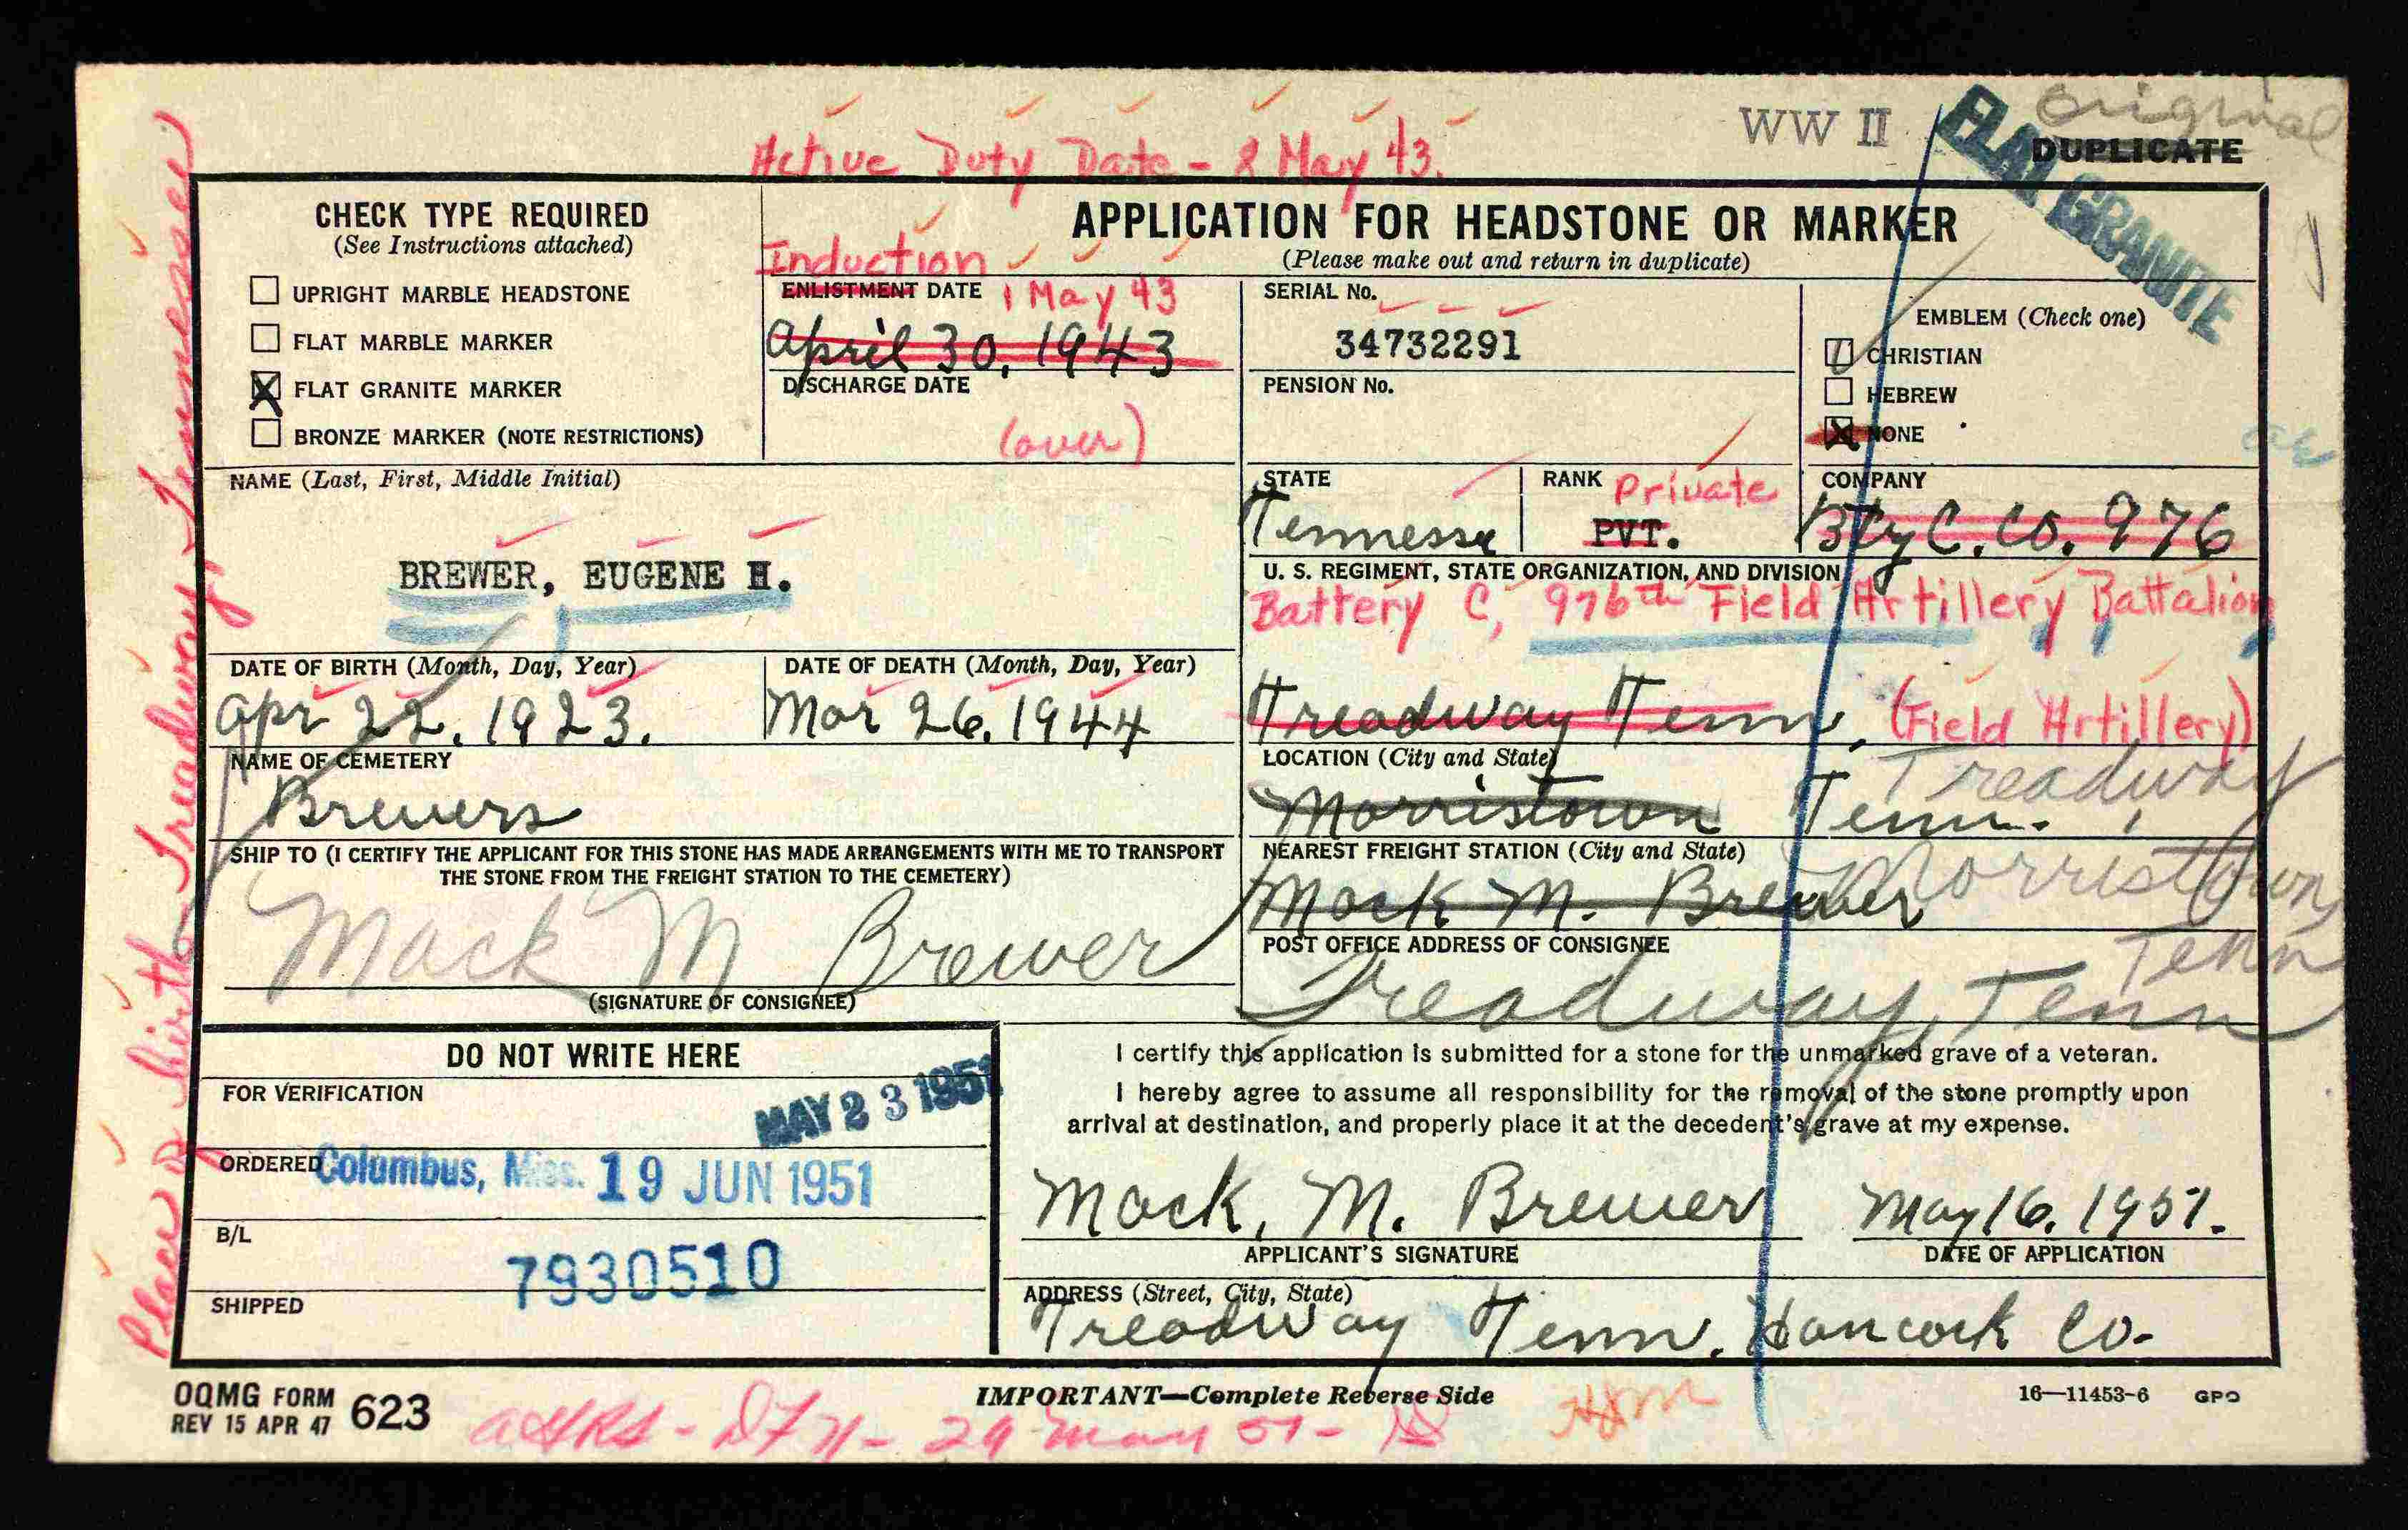 Active Duty Date - 2 May 43.
WW II
Original
DUPLICATE
FLAT GRANITE
CHECK TYPE REQUIRED
(See Instructions attached)
UPRIGHT MARBLE HEADSTONE
FLAT MARBLE MARKER
X FLAT GRANITE MARKER
BRONZE MARKER (NOTE RESTRICTIONS)
APPLICATION FOR HEADSTONE OR MARKER
(Please make out and return in duplicate)
Induction
ENLISTMENT DATE 1 May 43
April 30, 1943
DISCHARGE DATE
(over)
SERIAL No.
34732291
PENSION No.
EMBLEM (Check one)
CHRISTIAN
HEBREW
X NONE
NAME (Last, First, Middle Initial)
BREWER, EUGENE H.
STATE
Tennesse
RANK Private
PVT.
COMPANY
Bty C. Co. 976
U. S. REGIMENT, STATE ORGANIZATION, AND DIVISION
Battery C, 976th Field Artillery Battalion
Treadway Tenn. (Field Artillery)
DATE OF BIRTH (Month, Day, Year)
Apr 22. 1923.
DATE OF DEATH (Month, Day, Year)
Mar 26. 1944
NAME OF CEMETERY
Brewers
LOCATION (City and State)
Treadway
Morristown Tenn.
SHIP TO (I CERTIFY THE APPLICANT FOR THIS STONE HAS MADE ARRANGEMENTS WITH ME TO TRANSPORT
THE STONE FROM THE FREIGHT STATION TO THE CEMETERY)
Mack M Brewer
(SIGNATURE OF CONSIGNEE)
NEAREST FREIGHT STATION (City and State)
Mack M. Brewer Morristown
Tenn
POST OFFICE ADDRESS OF CONSIGNEE
Treadway, Tenn
DO NOT WRITE HERE
FOR VERIFICATION
MAY 23 1951
ORDERED Columbus, Miss. 19 JUN 1951
B/L
7930510
SHIPPED
I certify this application is submitted for a stone for the unmarked grave of a veteran.
I hereby agree to assume all responsibility for the removal of the stone promptly upon
arrival at destination, and properly place it at the decedent's grave at my expense.
Mack, M. Brewer May 16. 1951.
APPLICANT'S SIGNATURE DATE OF APPLICATION
ADDRESS (Street, City, State)
Treadway Tenn. Hancock Co.
OQMG FORM
REV 15 APR 47 623
IMPORTANT—Complete Reverse Side
16—11453-6 GPO
29 May 51
Place of birth - Treadway, Tennessee